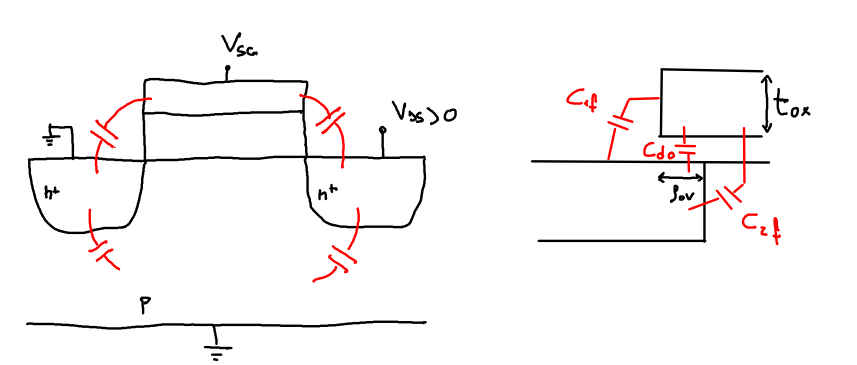 V_SG
V_DS > 0
n+
n+
P
C_1f
t_ox
C_do
l_ov
C_2f